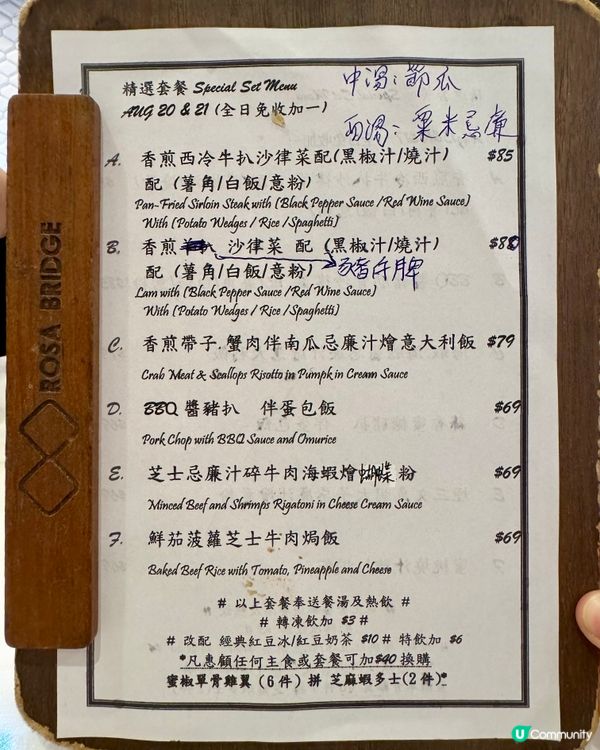 精選套餐 Special Set Menu
中湯：節瓜
AUG 20 & 21 (全日免收加一)
西湯：粟米忌廉
A. 香煎西冷牛扒沙律菜配(黑椒汁/燒汁) $85
配 (薯角/白飯/意粉)
Pan-Fried Sirloin Steak with (Black Pepper Sauce /Red Wine Sauce)
With (Potato Wedges / Rice /Spaghetti)
B. 香煎 沙律菜 配 (黑椒汁/燒汁)
配 (薯角/白飯/意粉)
Lam with (Black Pepper Sauce /Red Wine Sauce)
With (Potato Wedges / Rice /Spaghetti)
C. 香煎帶子.蟹肉伴南瓜忌廉汁燴意大利飯 $79
Crab Meat & Scallops Risotto in Pumpk in Cream Sauce
D. BBQ 醬豬扒 伴蛋包飯 $69
Pork Chop with BBQ Sauce and Omurice
E. 芝士忌廉汁碎牛肉海蝦燴蝴蝶粉 $69
Minced Beef and Shrimps Rigatoni in Cheese Cream Sauce
F. 鮮茄菠蘿芝士牛肉焗飯 $69
Baked Beef Rice with Tomato, Pineapple and Cheese
# 以上套餐奉送餐湯及熱飲 #
# 轉凍飲加 $3 #
# 改配 經典紅豆冰/紅豆奶茶 $10 # 特飲加 $6
*凡惠顧任何主食或套餐可加$40 換購
蜜椒單骨雞翼 (6 件) 拼 芝麻蝦多士(2 件)*
ROSA BRIDGE
U Community